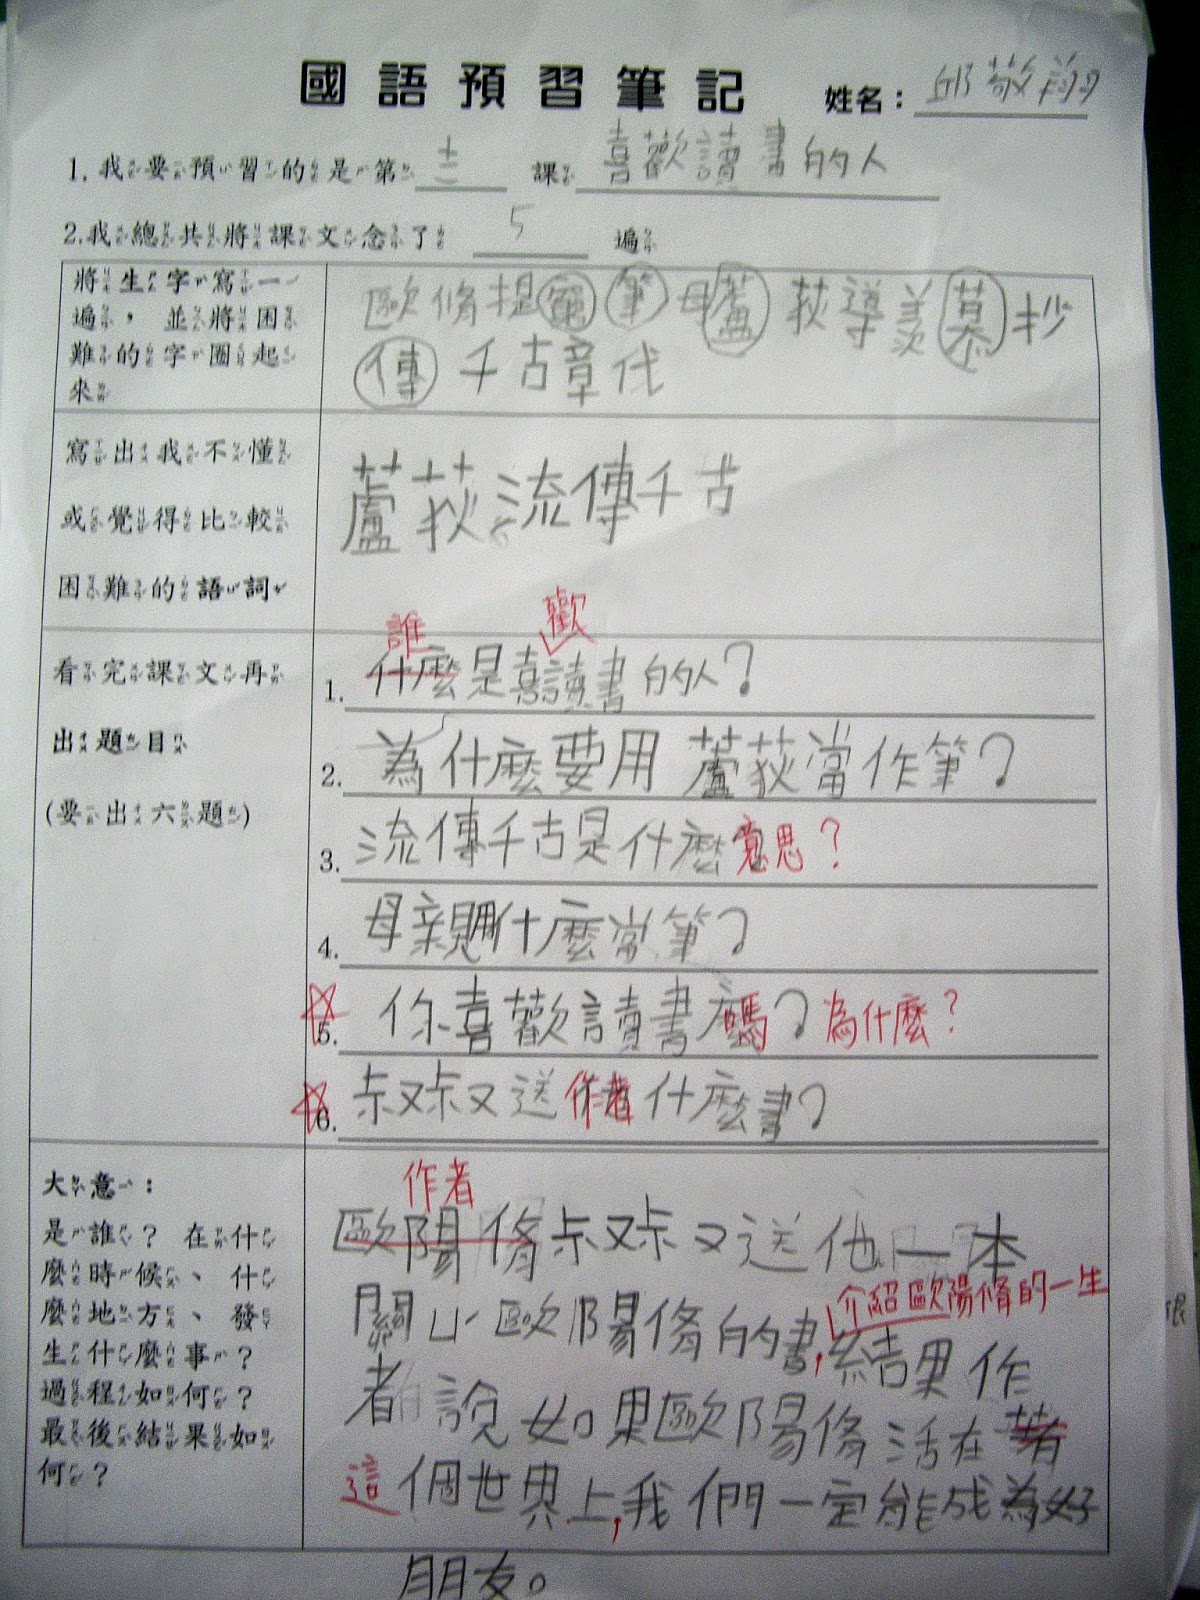 國語預習筆記 姓名：邱敬翔
1.我要預習的是第 十三 課 喜歡讀書的人
2.我總共將課文念了 5 遍
將生字寫一
遍，並將困
難的字圈起
來
歐修提 筆母蘆荻導羨慕抄
傳千古章代
寫出我不懂
或覺得比較
困難的語詞
蘆荻流傳千古
看完課文再
出題目
(要出六題)
誰 歡
1. 什麼是喜讀書的人？
2. 為什麼要用蘆荻當作筆？
3. 流傳千古是什麼意思？
4. 母親用什麼當筆？
5. 你喜歡讀書嗎？為什麼？
6. 叔叔送作者什麼書？
大意：
是誰？在什
麼時候、什
麼地方、發
生什麼事？
過程如何？
最後結果如
何？
作者
歐陽脩叔叔送他一本
關ㄩˊ歐陽脩的書，介紹歐陽脩的一生
結果作
者說如果歐陽脩活在
這個世界上，我們一定能成為好
朋友。